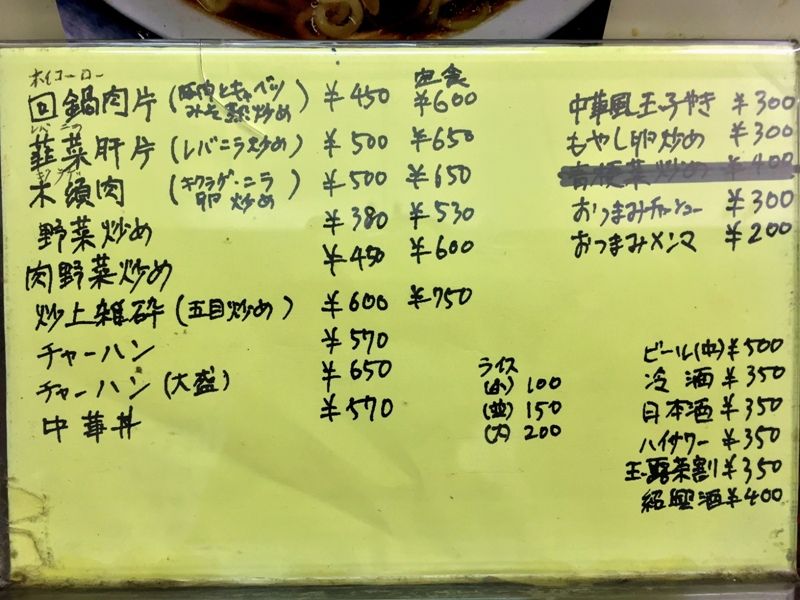 定食
ホイコーロー
回鍋肉片 (豚肉とキャベツ みそ炒め) ¥450 ¥600
レバニラ
韮菜肝片 (レバニラ炒め) ¥500 ¥650
木須肉 (キクラゲ・ニラ 卵炒め) ¥500 ¥650
野菜炒め ¥380 ¥530
肉野菜炒め ¥450 ¥600
炒上雑砕 (五目炒め) ¥600 ¥750
チャーハン ¥570
チャーハン (大盛) ¥650
中華丼 ¥570
ライス
(小) 100
(並) 150
(大) 200
中華風玉子やき ¥300
もやし卵炒め ¥300
青梗菜炒め ¥400
おつまみチャーシュー ¥300
おつまみメンマ ¥200
ビール(中) ¥500
冷酒 ¥350
日本酒 ¥350
ハイサワー ¥350
玉露茶割 ¥350
紹興酒 ¥400